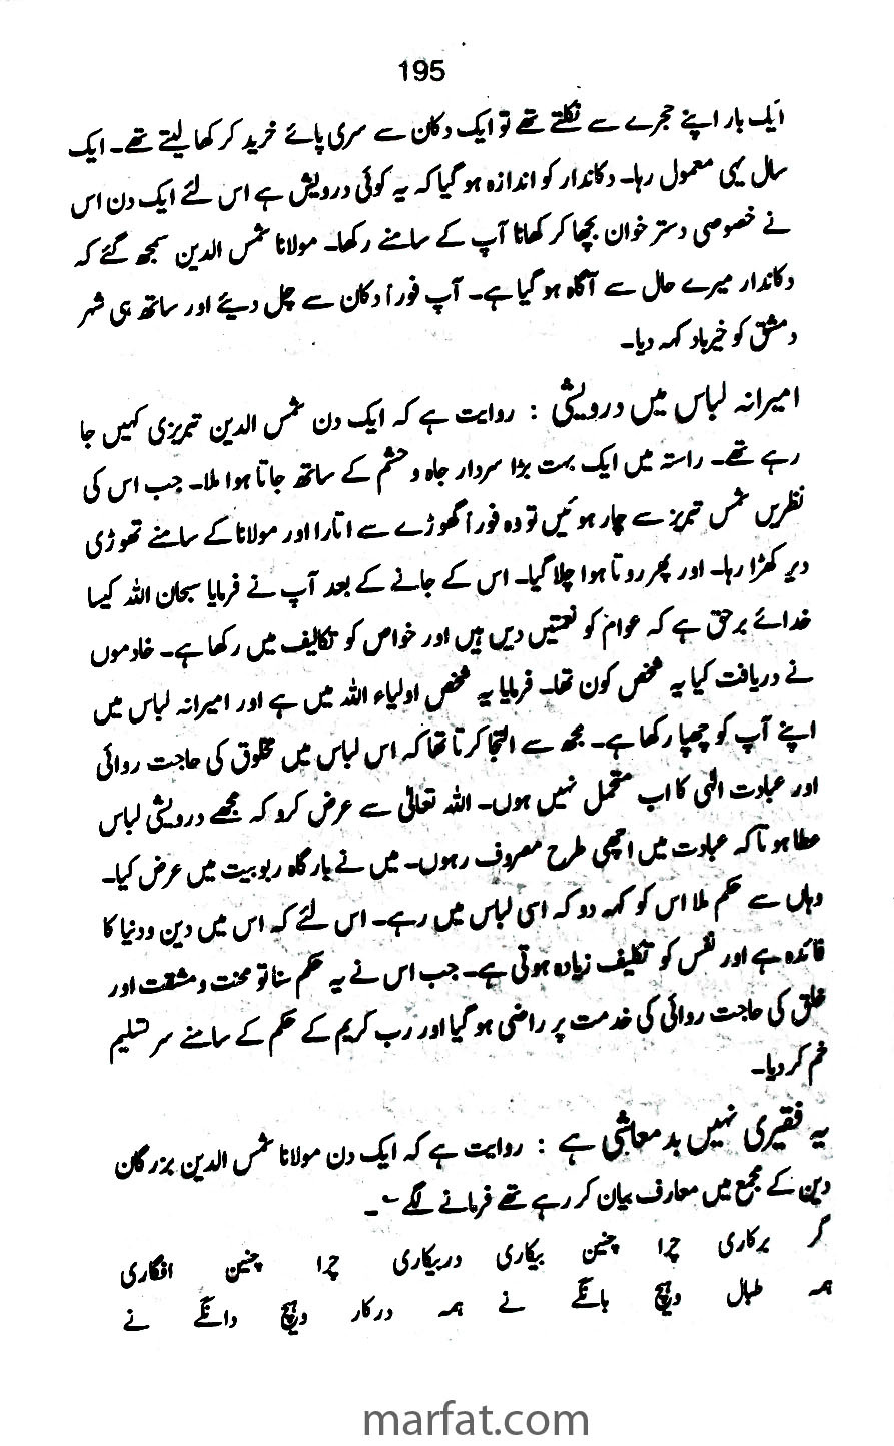 195
ایک بار اپنے حجرے سے نکلتے تھے تو ایک دکان سے سری پائے خرید کر کھا لیتے تھے۔ ایک
سال یہی معمول رہا۔ دکاندار کو اندازہ ہو گیا کہ یہ کوئی درویش ہے اس لئے ایک دن اس
نے خصوصی دستر خوان بچھا کر کھانا آپ کے سامنے رکھا۔ مولانا شمس الدین سمجھ گئے کہ
دکاندار میرے حال سے آگاہ ہو گیا ہے۔ آپ فوراً دکان سے چل دیئے اور ساتھ ہی شہر
دمشق کو خیرباد کہہ دیا۔
امیرانہ لباس میں درویشی : روایت ہے کہ ایک دن شمس الدین تبریزی کہیں جا
رہے تھے۔ راستہ میں ایک بہت بڑا سردار جاہ و حشم کے ساتھ جاتا ہوا ملا۔ جب اس کی
نظریں شمس تبریز سے چار ہوئیں تو وہ فوراً گھوڑے سے اتارا اور مولانا کے سامنے تھوڑی
دیر کھڑا رہا۔ اور پھر روتا ہوا چلا گیا۔ اس کے جانے کے بعد آپ نے فرمایا سبحان اللہ کیسا
خدائے برحق ہے کہ عوام کو نعمتیں دیں ہیں اور خواص کو تکالیف میں رکھا ہے۔ خادموں
نے دریافت کیا یہ شخص کون تھا۔ فرمایا یہ شخص اولیاء اللہ میں ہے اور امیرانہ لباس میں
اپنے آپ کو چھپا رکھا ہے۔ مجھ سے التجا کرتا تھا کہ اس لباس میں مخلوق کی حاجت روائی
اور عبادت الٰہی کا اب متحمل نہیں ہوں۔ اللہ تعالیٰ سے عرض کرو کہ مجھے درویشی لباس
عطا ہو تاکہ عبادت میں اچھی طرح مصروف رہوں۔ میں نے بارگاہ ربوبیت میں عرض کیا۔
وہاں سے حکم ملا اس کو کہہ دو کہ اسی لباس میں رہے۔ اس لئے کہ اس میں دین و دنیا کا
فائدہ ہے اور نفس کو تکلیف زیادہ ہوتی ہے۔ جب اس نے یہ حکم سنا تو محنت و مشقت اور
خلق کی حاجت روائی کی خدمت پر راضی ہو گیا اور رب کریم کے حکم کے سامنے سر تسلیم
خم کر دیا۔
یہ فقیری نہیں بدمعاشی ہے : روایت ہے کہ ایک دن مولانا شمس الدین بزرگان
دین کے مجمع میں معارف بیان کر رہے تھے فرمانے لگے ؎۔
گر برکاری چرا چنین بیکاری دربیکاری چرا چنین افگاری
ہمہ طبال وہیچ بانگے نے ہمہ درکار وہیچ دانگے نے
marfat.com